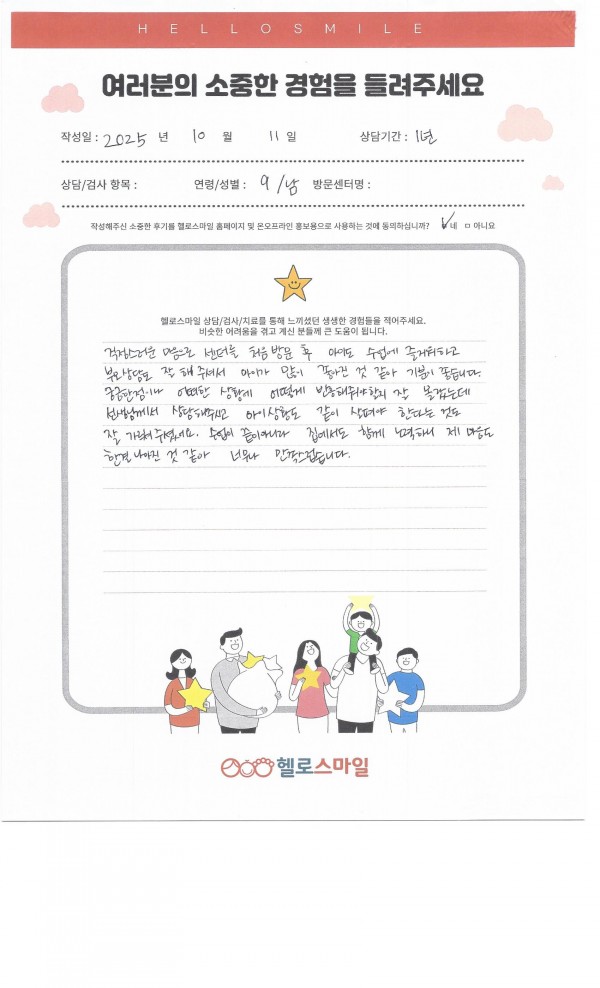 HELLOSMILE
여러분의 소중한 경험을 들려주세요
작성일 : 2025 년 10 월 11 일 상담기간 : 1년
상담/검사 항목 : 연령/성별 : 9 /남 방문센터명 :
작성해주신 소중한 후기를 헬로스마일 홈페이지 및 온오프라인 홍보용으로 사용하는 것에 동의하십니까? ✓네 ㅁ 아니요
헬로스마일 상담/검사/치료를 통해 느끼셨던 생생한 경험들을 적어주세요.
비슷한 어려움을 겪고 계신 분들께 큰 도움이 됩니다.
걱정스러운 마음으로 센터를 처음 방문 후 아이도 수업에 즐거워하고
부모상담도 잘 해 주셔서 아이가 많이 좋아진 것 같아 기분이 좋습니다.
궁금한점이나 어떠한 상황에 어떻게 반응해줘야할지 잘 몰랐는데
선생님께서 상담해주시고 아이상황도 같이 살펴야 한다는 것도
잘 가르쳐주셨어요. 수업이 끝이아니라 집에서도 함께 노력하니 제 마음도
한결 나아진 것 같아 너무나 만족스럽습니다.
헬로스마일